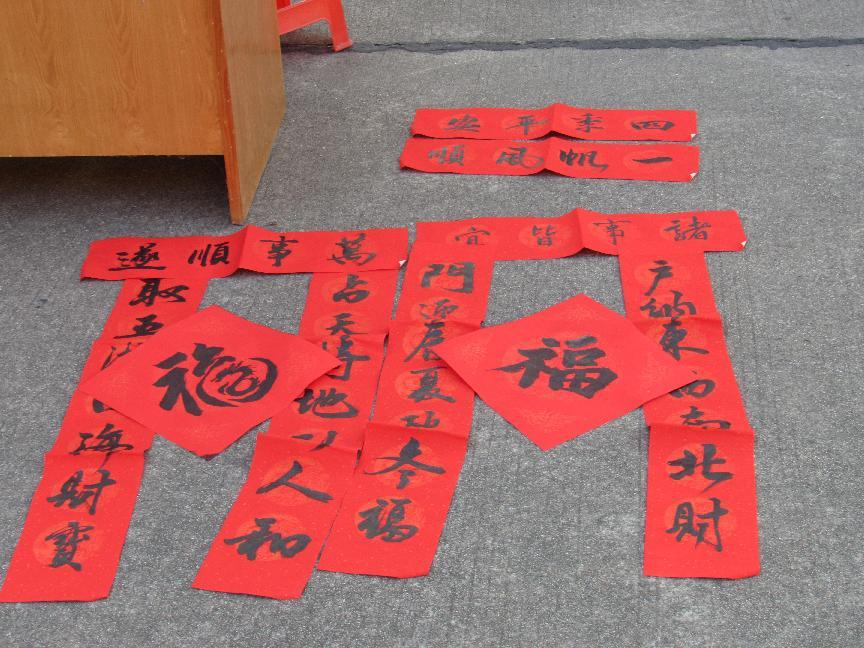 四季平安
一帆風順
諸事皆宜
萬事順遂
戶納東西南北財
福
門迎春夏秋冬福
占天時地利人和
福
取五湖四海財寶